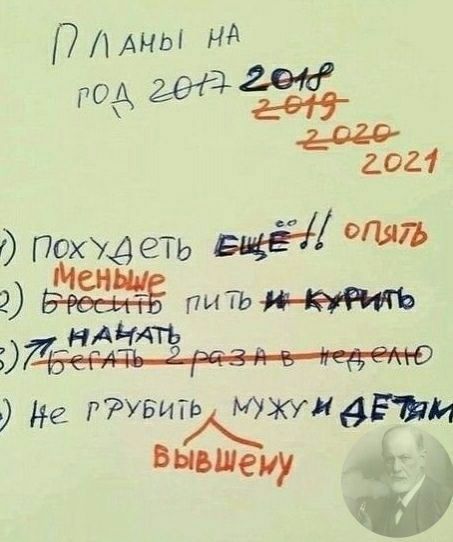 Планы на
год 2017 2018
2019
2020
2021
1) похудеть ЕЩЁ!! опять
Меньше
2) Бросить пить и курить
НАЧАТЬ
3) Бегать 2 раза в неделю
) Не грубить мужу и ДЕТЯМ
Бывшему